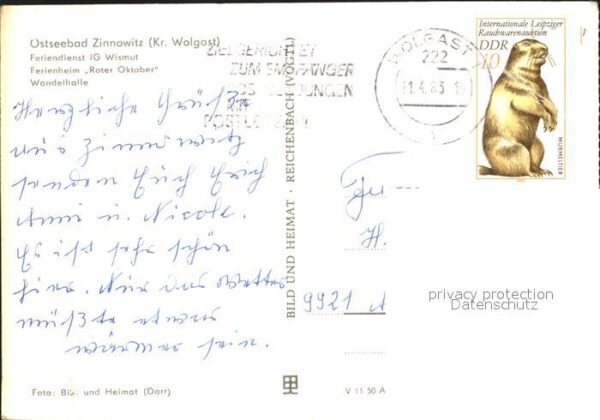 Ostseebad Zinnowitz (Kr. Wolgast)
Feriendienst IG Wismut
Ferienheim „Roter Oktober"
Wandelhalle
Herzliche Grüße
aus Zinnowitz
senden Euch Erich
Anni u. Nicole.
Es ist sehr schön
hier. Nur das Wetter
müßte etwas
wärmer sein.
Foto: Bild und Heimat (Darr)
BILD UND HEIMAT · REICHENBACH (VOGTL)
V 11 50 A
ZIELGERICHTET
ZUM EMPFÄNGER
POSTLEITZAHL
WOLGAST
222
4.83
Internationale Leipziger
Rauchwarenauktion
DDR
10
MURMELTIER
Fa
H.
9921 A
privacy protection
Datenschutz